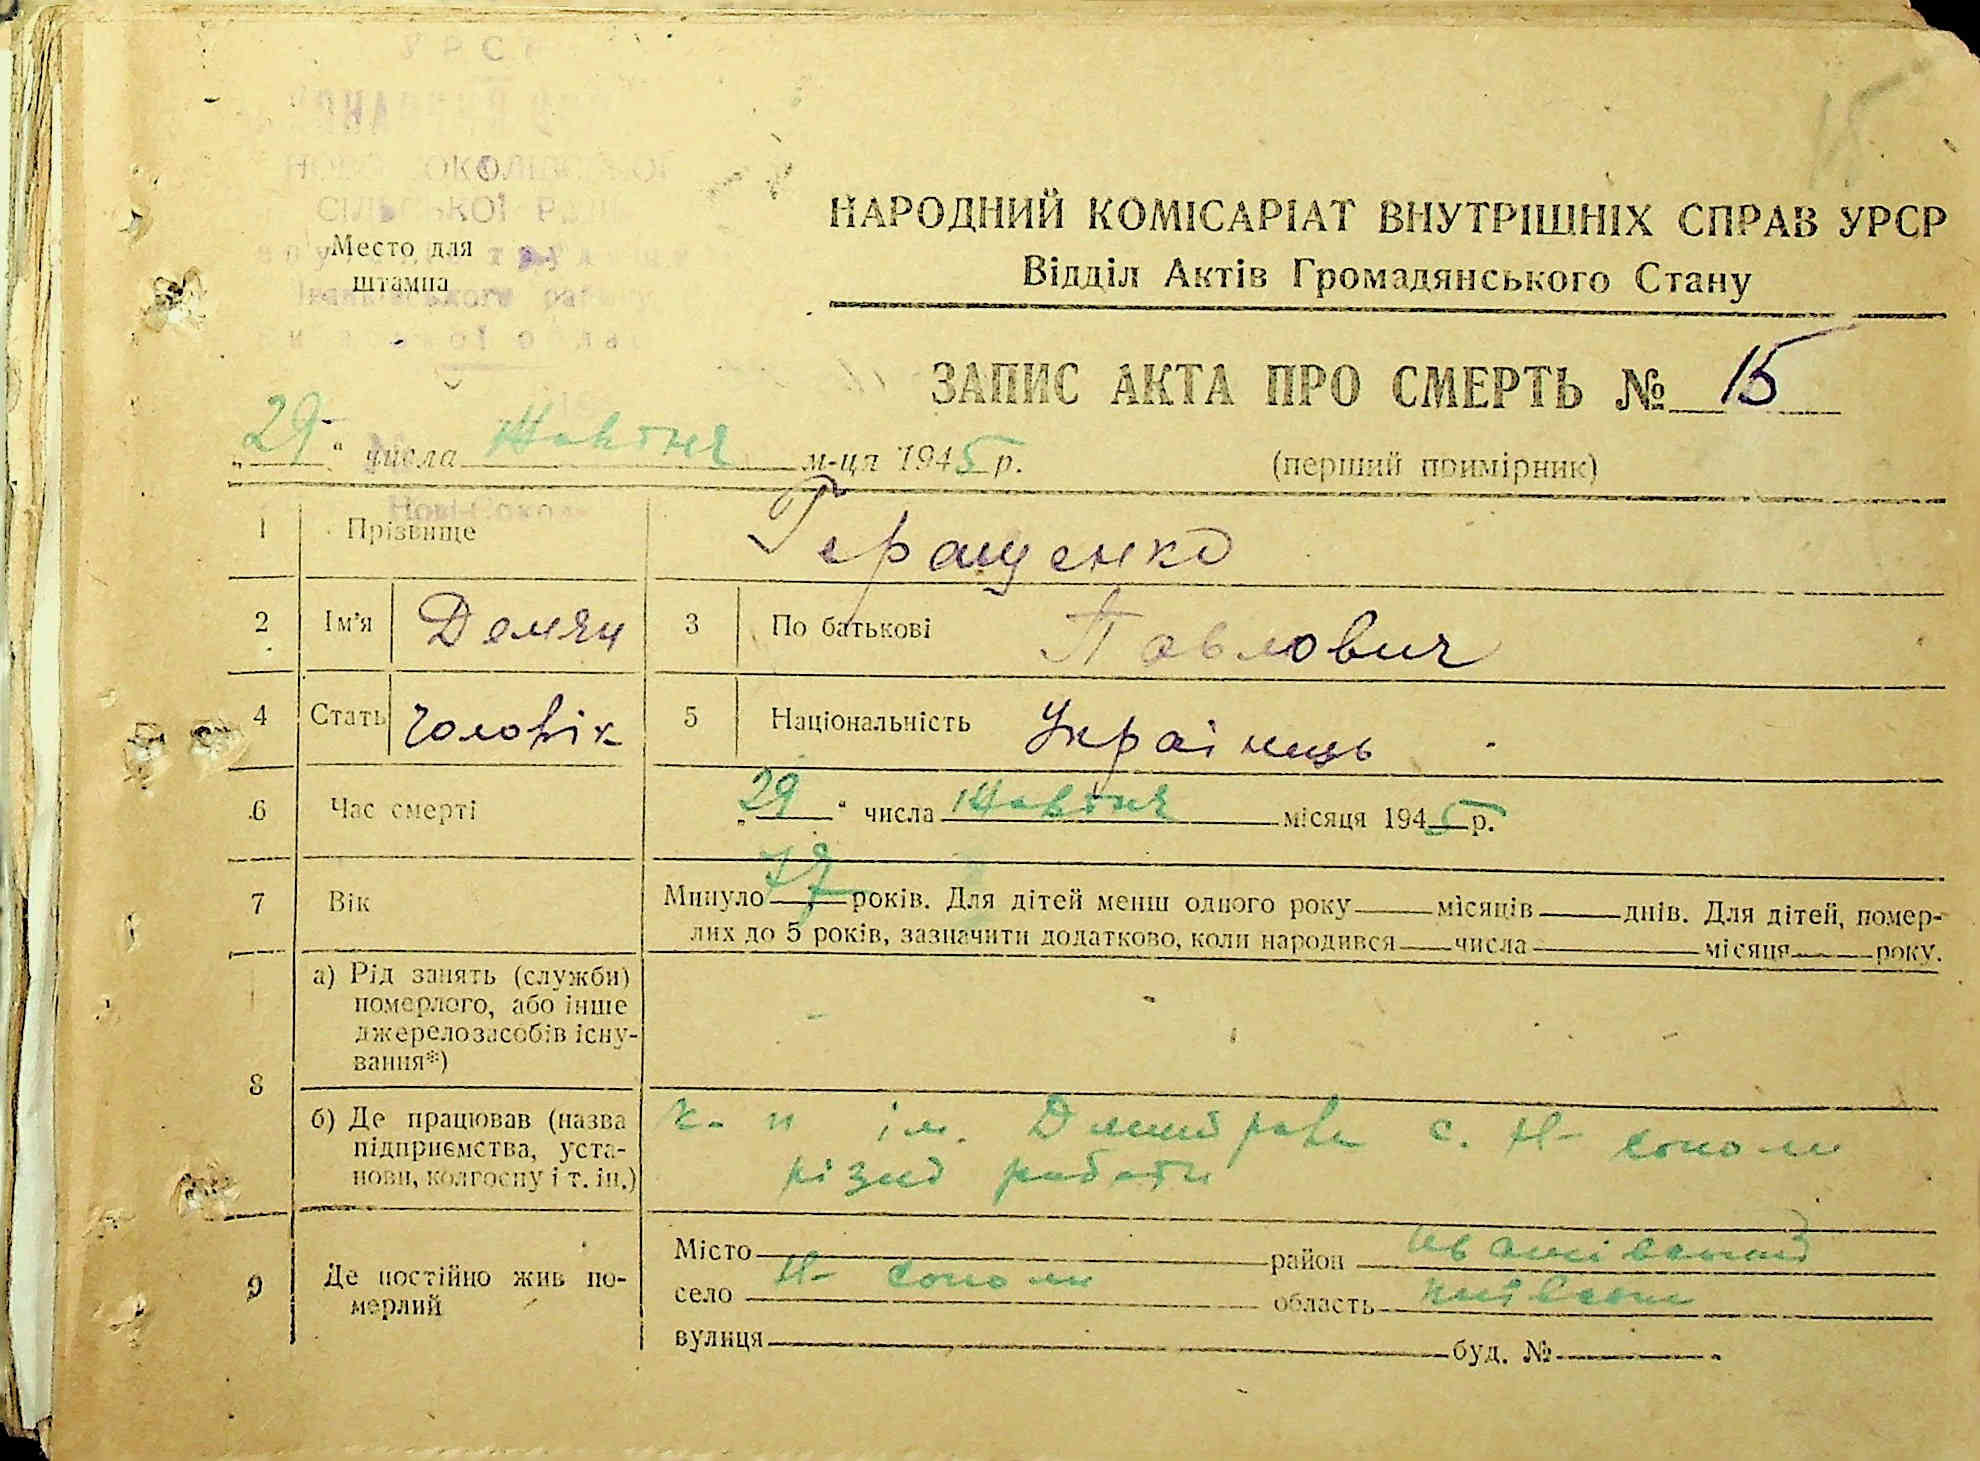 15
НАРОДНИЙ КОМІСАРІАТ ВНУТРІШНІХ СПРАВ УРСР
Відділ Актів Громадянського Стану
СІЛЬСЬКОЇ РАДИ
Место для
штампа
ЗАПИС АКТА ПРО СМЕРТЬ № 15
„29“ числа Жовтня м-ця 1945 р.
(перший примірник)
1 Прізвище Геращенко
2 Ім'я Демян 3 По батькові Павлович
4 Стать чоловік 5 Національність Українець
6 Час смерті „29“ числа Жовтня місяця 1945 р.
7 Вік Минуло 77 років. Для дітей менш одного року місяців днів. Для дітей, помер-
лих до 5 років, зазначити додатково, коли народився числа місяця року.
8 а) Рід занять (служби)
померлого, або інше
джерело засобів існу-
вання*)
б) Де працював (назва
підприємства, уста-
нови, колгоспу і т. ін.)
ім. Димитрова с. Н- Соколи
різні роботи
9 Де постійно жив по-
мерлий
Місто район Іванківський
село Н- Соколи область Київська
вулиця буд. №